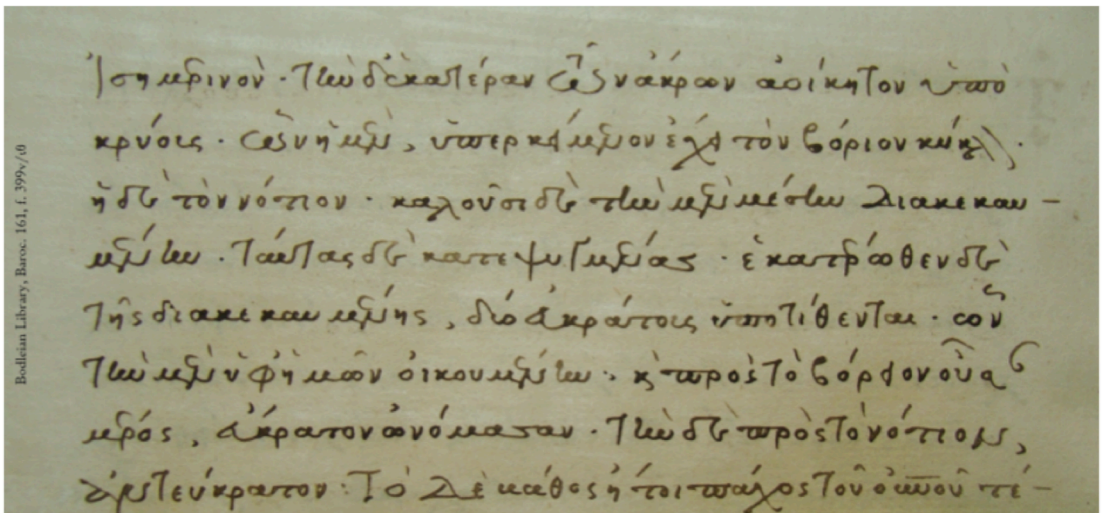 ἰσημερινὸν · τὴν δ' ἑκατέραν τῶν ἄκρων ἀοίκητον ὑπὸ
κρύους · ὧν ἡ μὲν, ὑπερκείμενον ἔχει τὸν βόριον κύκλον ·
ἡ δὲ τὸν νότιον · καλοῦσι δὲ τὴν μὲν μέσην διακεκαυ-
μένην · ταύτας δὲ κατεψυγμένας · ἑκατέρωθεν δὲ
τῆς διακεκαυμένης, δύο εὐκράτους ὑποτίθενται · ὧν
τὴν μὲν ὑφ' ἡμῶν οἰκουμένην · καὶ πρὸς τὸ βόρειον οὖσαν
μέρος, εὔκρατον ὠνόμασαν · τὴν δὲ πρὸς τὸ νότιον,
ἀντεύκρατον : Τὸ δὲ βάθος ἤτοι πάχος τοῦ οὐνοῦ τέ-
Bodleian Library, Baroc. 161, f. 399v/